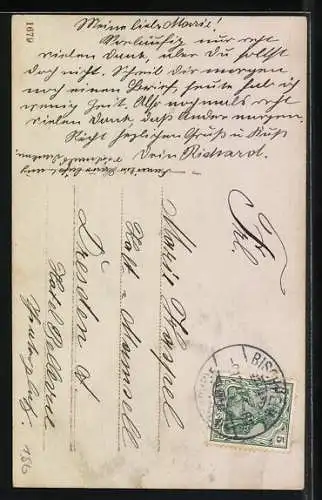 1679
Meine liebe Marie!
Vorläufig nur recht
vielen Dank, aber Du sollst
doch nicht. Schreib Dir morgen
noch einen Brief, heute hab ich
wenig Zeit. Also nochmals recht
vielen Dank, das Andere morgen.
Recht herzlichen Gruß u. Kuß
Dein Richard.
Frl.
Marie Koppel
Kalt-Mamsell
Dresden A.
Hotel Bellevue
186
BISCH
5